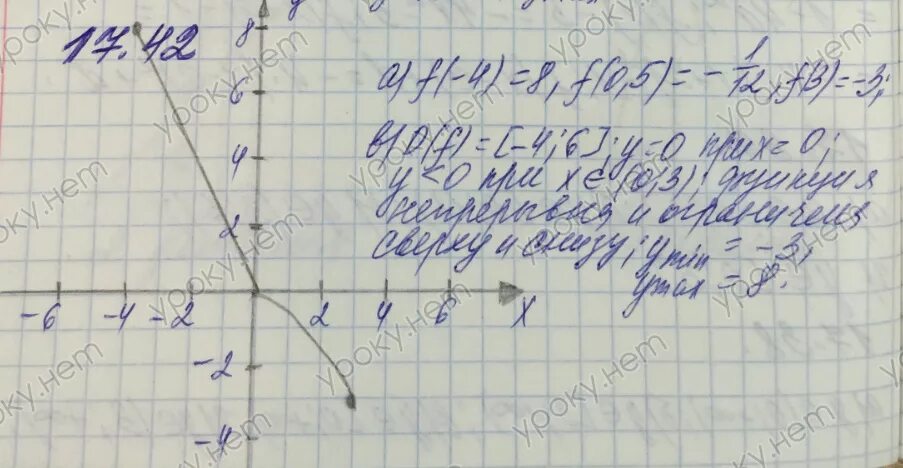 17.42
а) f(-4) = 8, f(0,5) = - 1/12, f(3) = -3;
в) D(f) = [-4; 6]; y=0 при x=0;
y<0 при x ∈ (0;3); функция
непрерывна и ограничена
сверху и снизу; ymin = -3,
ymax = 8.
y
8
6
4
2
-6 -4 -2 2 4 6 x
-2
-4
уроку.нет
уроку.нет
уроку.нет
уроку.нет
уроку.нет
уроку.нет
уроку.нет
уроку.нет
уроку.нет
уроку.нет
уроку.нет